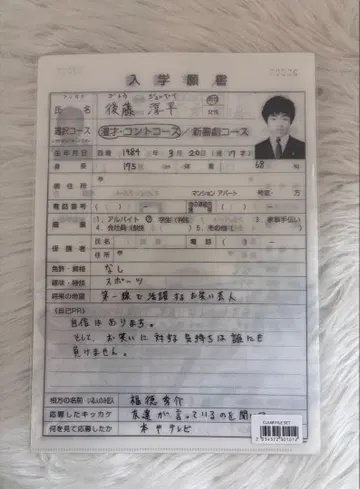 入学願書
ゴトウ ジュンペイ
氏名 後藤 淳平 男性 女性
選択コース 漫才・コントコース/新喜劇コース
生年月日 西暦 1984 年 3月20日(満 19才)
身長 175 体重 68 kg
現住所 〒
マンション アパート 号室 方
電話番号
職業 1. アルバイト 2 学生(学校 3. 家事手伝い
4. 会社員(会社 5. その他( )
保護者 氏名 電話 ( ) −
住所 〒
免許・資格 なし
趣味・特技 スポーツ
将来の希望 第一線で活躍するお笑い芸人
《自己PR》
自信はあります。
そして、お笑いに対する気持ちは誰にも
負けません。
相方の名前 (いる人のみ記入) 福徳秀介
応募したキッカケ 友達が言っているのを聞いて
何を見て応募したか 本やテレビ
CLEAR FILE SET